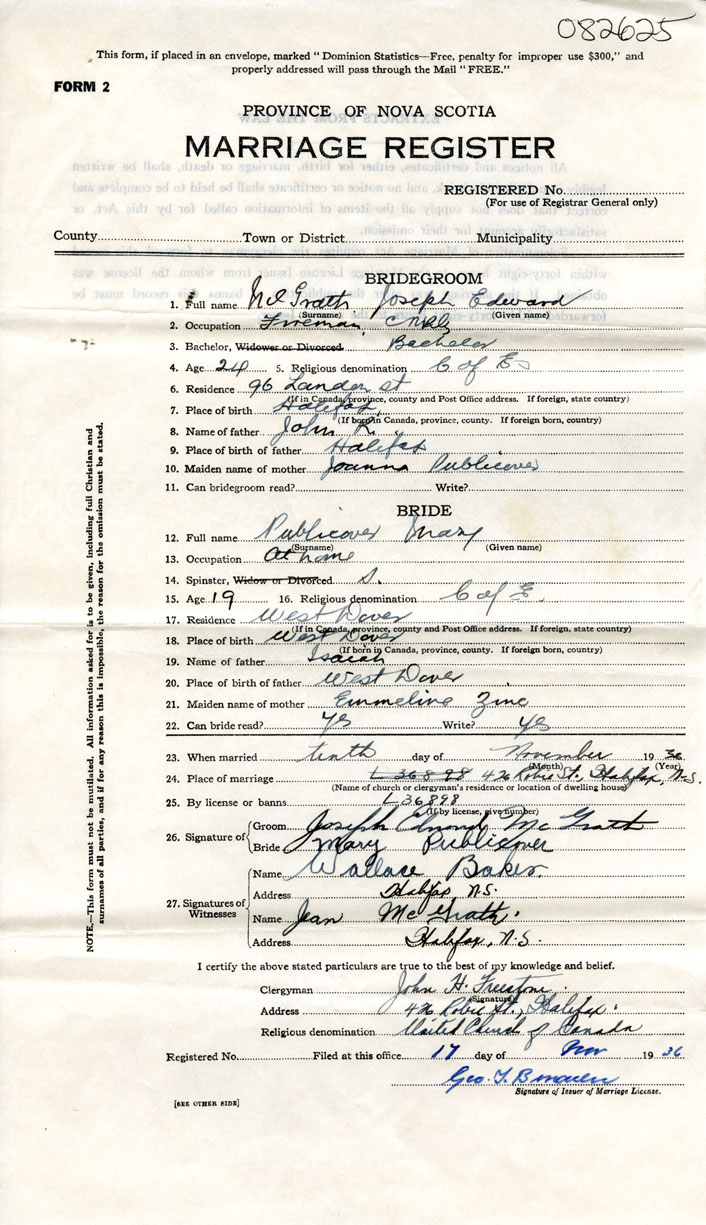 082625
This form, if placed in an envelope, marked "Dominion Statistics—Free, penalty for improper use $300," and
properly addressed will pass through the Mail "FREE."
FORM 2
PROVINCE OF NOVA SCOTIA
MARRIAGE REGISTER
REGISTERED No.
(For use of Registrar General only)
County Town or District Municipality
BRIDEGROOM
1. Full name McGrath Joseph Edward
(Surname) (Given name)
2. Occupation Fireman, CNR
3. Bachelor, Widower or Divorced Bachelor
4. Age 24 5. Religious denomination C of E
6. Residence 96 Lander st
(If in Canada, province, county and Post Office address. If foreign, state country)
7. Place of birth Halifax
(If born in Canada, province, county. If foreign born, country)
8. Name of father John R.
9. Place of birth of father Halifax
10. Maiden name of mother Joanna Publicover
11. Can bridegroom read? Write?
BRIDE
12. Full name Publicover Mary
(Surname) (Given name)
13. Occupation At home
14. Spinster, Widow or Divorced S.
15. Age 19 16. Religious denomination C of E.
17. Residence West Dover
(If in Canada, province, county and Post Office address. If foreign, state country)
18. Place of birth West Dover
(If born in Canada, province, county. If foreign born, country)
19. Name of father Isaiah
20. Place of birth of father West Dover
21. Maiden name of mother Emmeline Zinc
22. Can bride read? Yes Write? Yes
23. When married tenth day of November 19 36
(Month) (Year)
24. Place of marriage L 36898 426 Robie St., Halifax, N.S.
(Name of church or clergyman's residence or location of dwelling house)
25. By license or banns L 36898
(If by license, give number)
26. Signature of
Groom Joseph Edmond McGrath
Bride Mary Publicover
27. Signatures of Witnesses
Name Wallace Baker
Address Halifax N.S.
Name Jean McGrath.
Address Halifax, N.S.
I certify the above stated particulars are true to the best of my knowledge and belief.
Clergyman John H. Freestone.
(Signature)
Address 426 Robie St., Halifax.
Religious denomination United Church of Canada
Registered No. Filed at this office 17 day of Nov 19 36
Geo. T.
Signature of Issuer of Marriage License.
[SEE OTHER SIDE]
NOTE.—This form must not be mutilated. All information asked for is to be given, including full Christian and
surnames of all parties, and if for any reason this is impossible, the reason for the omission must be stated.